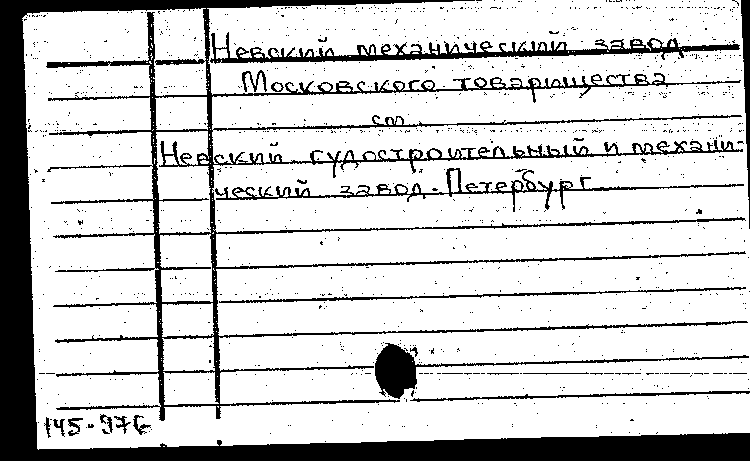 Невский механический завод
Московского товарищества
см.
Невский судостроительный и механи-
ческий завод. Петербург
145-976